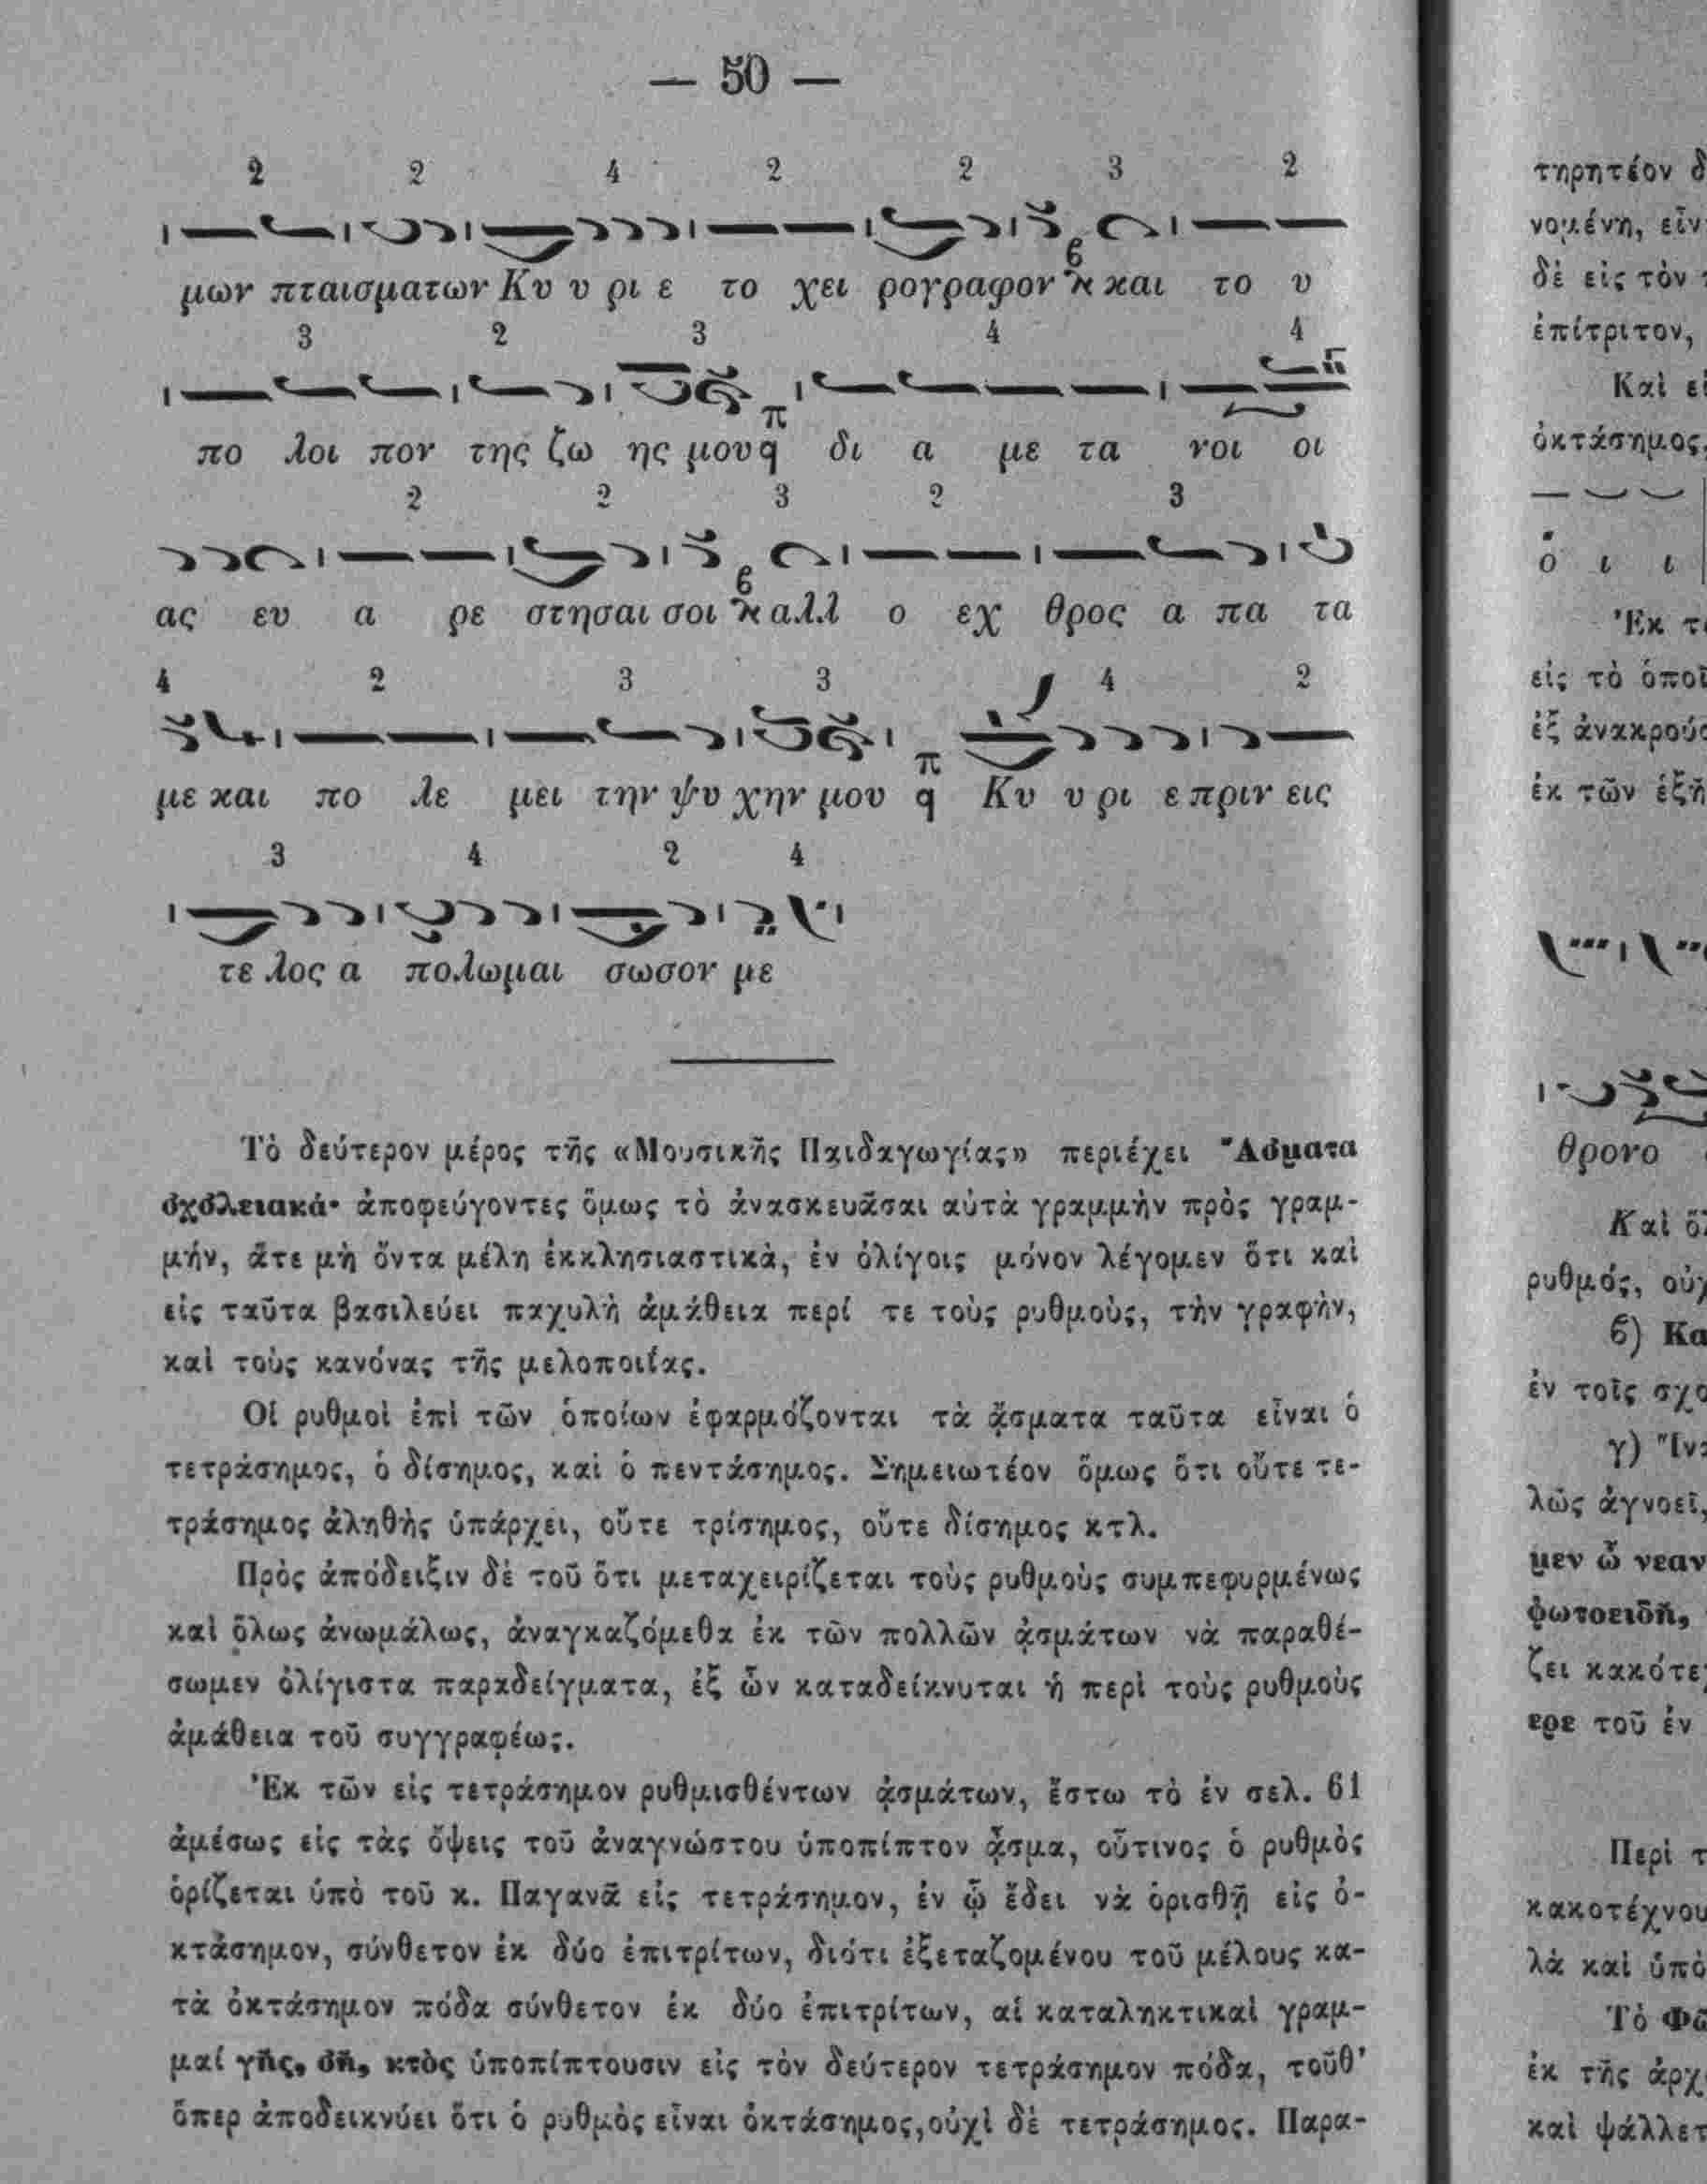 — 50 —
2 2 4 2 2 3 2
μων πταισματων Κυ υ ρι ε το χει ρογραφον και το υ
3 2 3 4 4
πο λοι πον της ζω ης μου π q δι α με τα νοι οι
2 2 3 2 3
ας ευ α ρε στησαι σοι αλλ ο εχ θρος α πα τα
4 2 3 3 4 2
με και πο λε μει την ψυ χην μου π q Κυ υ ρι ε πριν εις
3 4 2 4
τε λος α πολωμαι σωσον με
Τὸ δεύτερον μέρος τῆς «Μουσικῆς Παιδαγωγίας» περιέχει Ἄσματα
σχολειακά· ἀποφεύγοντες ὅμως τὸ ἀνασκευᾶσαι αὐτὰ γραμμὴν πρὸς γραμ-
μήν, ἅτε μὴ ὄντα μέλη ἐκκλησιαστικὰ, ἐν ὀλίγοις μόνον λέγομεν ὅτι καὶ
εἰς ταῦτα βασιλεύει παχυλὴ ἀμάθεια περί τε τοὺς ρυθμοὺς, τὴν γραφὴν,
καὶ τοὺς κανόνας τῆς μελοποιΐας.
Οἱ ρυθμοὶ ἐπὶ τῶν ὁποίων ἐφαρμόζονται τὰ ᾄσματα ταῦτα εἶναι ὁ
τετράσημος, ὁ δίσημος, καὶ ὁ πεντάσημος. Σημειωτέον ὅμως ὅτι οὔτε τε-
τράσημος ἀληθὴς ὑπάρχει, οὔτε τρίσημος, οὔτε δίσημος κτλ.
Πρὸς ἀπόδειξιν δὲ τοῦ ὅτι μεταχειρίζεται τοὺς ρυθμοὺς συμπεφυρμένως
καὶ ὅλως ἀνωμάλως, ἀναγκαζόμεθα ἐκ τῶν πολλῶν ᾀσμάτων νὰ παραθέ-
σωμεν ὀλίγιστα παραδείγματα, ἐξ ὧν καταδείκνυται ἡ περὶ τοὺς ρυθμοὺς
ἀμάθεια τοῦ συγγραφέως.
Ἐκ τῶν εἰς τετράσημον ρυθμισθέντων ᾀσμάτων, ἔστω τὸ ἐν σελ. 61
ἀμέσως εἰς τὰς ὄψεις τοῦ ἀναγνώστου ὑποπίπτον ᾆσμα, οὗτινος ὁ ρυθμὸς
ὁρίζεται ὑπὸ τοῦ κ. Παγανᾶ εἰς τετράσημον, ἐν ᾧ ἔδει νὰ ὁρισθῇ εἰς ὀ-
κτάσημον, σύνθετον ἐκ δύο ἐπιτρίτων, διότι ἐξεταζομένου τοῦ μέλους κα-
τὰ ὀκτάσημον πόδα σύνθετον ἐκ δύο ἐπιτρίτων, αἱ καταληκτικαὶ γραμ-
μαί γῆς, σῆ, κτὸς ὑποπίπτουσιν εἰς τὸν δεύτερον τετράσημον πόδα, τοῦθ'
ὅπερ ἀποδεικνύει ὅτι ὁ ρυθμὸς εἶναι ὀκτάσημος,οὐχὶ δὲ τετράσημος. Παρα-
τηρητέον
δὲ εἰς τὸν
ἐπίτριτον,
Καὶ
ὀκτάσημος,
ὁ ι ι
Ἐκ
εἰς τὸ
ἐκ τῶν
θρονο
Καὶ
ρυθμός,
ϐ)
ἐν τοῖς
γ)
λῶς ἀγνοεῖ,
μεν ὦ
φωτοειδῆ,
ζει
ερε τοῦ ἐν
Περὶ
λὰ καὶ
Τὸ
ἐκ τῆς
καὶ